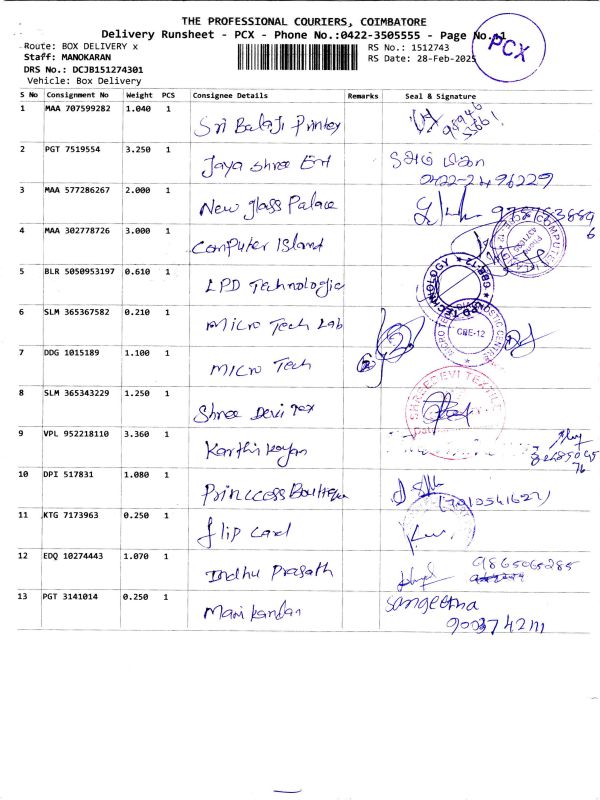 THE PROFESSIONAL COURIERS, COIMBATORE
Delivery Runsheet - PCX - Phone No.:0422-3505555 - Page No.:1
PCX
Route: BOX DELIVERY x
RS No.: 1512743
Staff: MANOKARAN
RS Date: 28-Feb-2025
DRS No.: DCJB151274301
Vehicle: Box Delivery
S No Consignment No Weight PCS Consignee Details Remarks Seal & Signature
1 MAA 707599282 1.040 1 Sri Balaji Printey
2 PGT 7519554 3.250 1 Jaya Shree Ent
0422-2496229
3 MAA 577286267 2.000 1 New glass Palace
4 MAA 302778726 3.000 1 Computer Island
5 BLR 5050953197 0.610 1 LPD Technologie
LPD TECHNOLOGY CBE-12
6 SLM 365367582 0.210 1 Micro Tech Lab
CBE-12
7 DDG 1015189 1.100 1 Micro Tech
8 SLM 365343229 1.250 1 Shree Devi Tex
SHREEDEVI TEXTILE
9 VPL 952218110 3.360 1 Karthikeyan
10 DPI 517831 1.080 1 Princcess Boutique
(7010541627)
11 KTG 7173963 0.250 1 flip card
12 EDQ 10274443 1.070 1 Indhu Prasath
9865065285
13 PGT 3141014 0.250 1 Manikandan
Sangeetha
9003742111